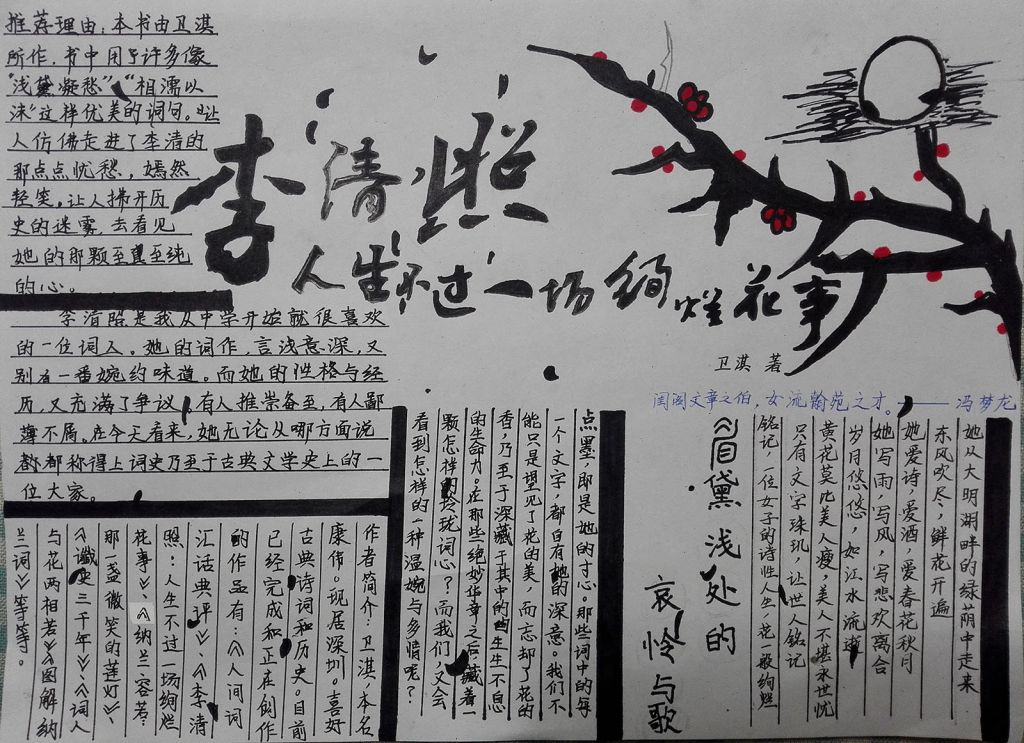 推荐理由：本书由卫淇
所作，书中用了许多像
“浅黛凝愁”、“相濡以
沫”这样优美的词句。让
人仿佛走进了李清的
那点点忧愁，嫣然
轻笑。让人拂开历
史的迷雾，去看见
她的那颗至真至纯
的心。
李清照
人生不过一场绚烂花事
卫淇 著
闺阁文章之伯，女流翰苑之才。——冯梦龙
李清照是我从中学开始就很喜欢
的一位词人。她的词作，言浅意深，又
别有一番婉约味道。而她的性格与经
历，又充满了争议，有人推崇备至，有人鄙
薄不屑。在今天看来，她无论从哪方面说
都称得上词史乃至于古典文学史上的一
位大家。
她从大明湖畔的绿荫中走来
东风吹尽，鲜花开遍
她爱诗，爱酒，爱春花秋月
她写雨，写风，写悲欢离合
岁月悠悠，如江水流逝
黄花莫比美人瘦，美人不堪永世忧
只有文字珠玑，让世人铭记
铭记，一位女子的诗性人生，花一般绚烂
眉黛浅处的
哀怜与歌
点墨，即是她的寸心。那些词中的每
一个文字，都自有她的深意。我们不
能只是望见了花的美，而忘却了花的
香，乃至于深藏于其中的生生不息
的生命力。在那些绝妙华章之后，藏着一
颗怎样的玲珑词心？而我们，又会
看到怎样的一种温婉与多情呢？
作者简介：卫淇，本名
康伟。现居深圳。喜好
古典诗词和历史。目前
已经完成和正在创作
的作品有：《人间词
汇话典评》、《李清
照：人生不过一场绚烂
花事》、《纳兰容若：
那一盏微笑的莲灯》、
《谶史三千年》、《词人
与花两相若》《图解纳
兰词》等等。